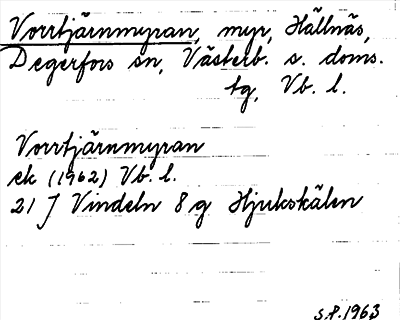 Vorrtjärnmyran, myr, Hällnäs,
Degerfors sn, Västerb. s. doms.
tg, Vb. l.
Vorrtjärnmyran
ek (1962) Vb. l.
21 J Vindeln 8 g Hjukskälen
S.P. 1963